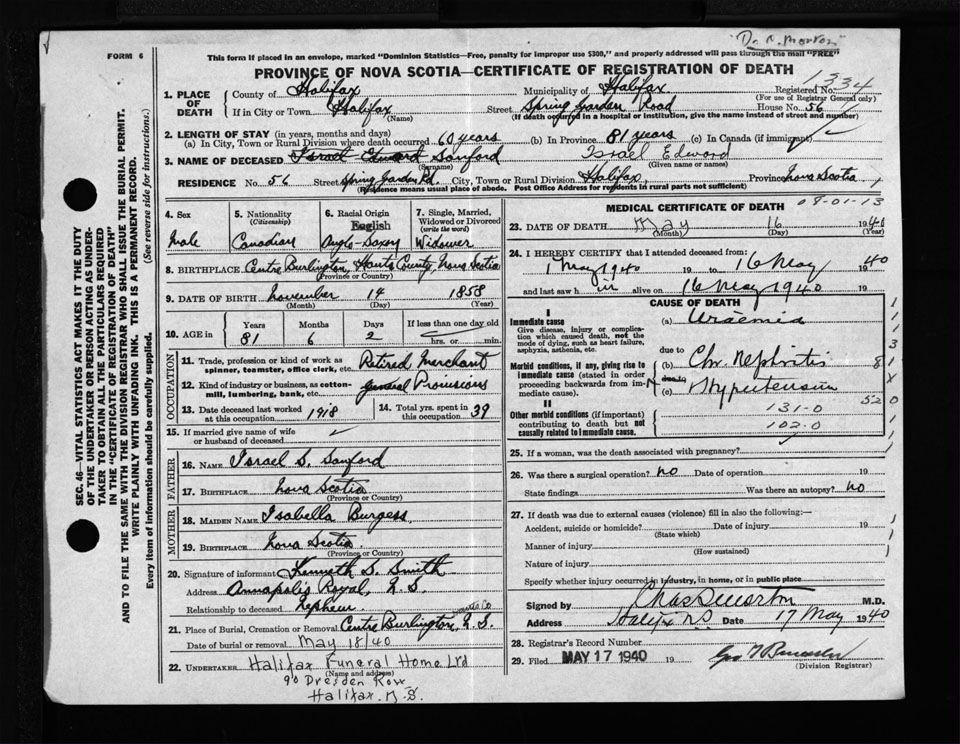 "Dr. C. Morton"
FORM 6
This form if placed in an envelope, marked "Dominion Statistics—Free, penalty for improper use $300," and properly addressed will pass through the mail "FREE"
PROVINCE OF NOVA SCOTIA—CERTIFICATE OF REGISTRATION OF DEATH
1. PLACE OF DEATH
County of Halifax Municipality of Halifax Registered No. 1334
(For use of Registrar General only)
If in City or Town Halifax Street Spring Garden Road House No. 56
(Name) (If death occurred in a hospital or institution, give the name instead of street and number)
2. LENGTH OF STAY (in years, months and days)
(a) In City, Town or Rural Division where death occurred 60 years (b) In Province 81 years (c) In Canada (if immigrant)
3. NAME OF DECEASED Israel Edward Sanford Israel Edward
(Surname) (Given name or names)
RESIDENCE No. 56 Street Spring Garden Rd. City, Town or Rural Division Halifax, Province Nova Scotia
(Residence means usual place of abode. Post Office Address for residents in rural parts not sufficient)
4. Sex
Male
5. Nationality (Citizenship)
Canadian
6. Racial Origin
English
Anglo-Saxon
7. Single, Married, Widowed or Divorced (write the word)
Widower
8. BIRTHPLACE Centre Burlington, Hants County, Nova Scotia
(Province or Country)
9. DATE OF BIRTH November 14 1858
(Month) (Day) (Year)
10. AGE in Years Months Days If less than one day old
81 6 2 hrs. or min.
OCCUPATION
11. Trade, profession or kind of work as spinner, teamster, office clerk, etc. Retired Merchant
12. Kind of industry or business, as cotton-mill, lumbering, bank, etc. General Provisions
13. Date deceased last worked at this occupation 1918
14. Total yrs. spent in this occupation 39
15. If married give name of wife or husband of deceased
FATHER
16. NAME Israel S. Sanford
17. BIRTHPLACE Nova Scotia
(Province or Country)
MOTHER
18. MAIDEN NAME Isabella Burgess
19. BIRTHPLACE Nova Scotia
(Province or Country)
20. Signature of informant Kenneth S. Smith
Address Annapolis Royal, N.S.
Relationship to deceased Nephew
21. Place of Burial, Cremation or Removal Centre Burlington, Hants Co N.S.
Date of burial or removal May 18/40
22. UNDERTAKER Halifax Funeral Home Ltd
(Name and address)
90 Dresden Row
Halifax. N.S.
MEDICAL CERTIFICATE OF DEATH
09-01-13
23. DATE OF DEATH May 16 1940
(Month) (Day) (Year)
24. I HEREBY CERTIFY that I attended deceased from:
1 May 1940 19 to 16 May 1940
and last saw h im alive on 16 May 1940 19
CAUSE OF DEATH
I
Immediate cause
Give disease, injury or complication which caused death, not the mode of dying, such as heart failure, asphyxia, asthenia, etc.
(a) Uraemia
due to
Morbid conditions, if any, giving rise to immediate cause (stated in order proceeding backwards from immediate cause).
(b) Chr. Nephritis 8
due to
(c) Hypertension
520
II
Other morbid conditions (if important) contributing to death but not causally related to immediate cause.
131-0
102.0
25. If a woman, was the death associated with pregnancy?
26. Was there a surgical operation? no Date of operation 19
State findings Was there an autopsy? no
27. If death was due to external causes (violence) fill in also the following:—
Accident, suicide or homicide? Date of injury 19
(State which)
Manner of injury
(How sustained)
Nature of injury
Specify whether injury occurred in industry, in home, or in public place
Signed by Chas S Morton M.D.
Address Halifax N.S. Date 17 May 1940
28. Registrar's Record Number
29. Filed MAY 17 1940 19
(Division Registrar)
SEC. 46—VITAL STATISTICS ACT MAKES IT THE DUTY
OF THE UNDERTAKER OR PERSON ACTING AS UNDER-
TAKER TO OBTAIN ALL THE PARTICULARS REQUIRED
IN THE "CERTIFICATE OF REGISTRATION OF DEATH"
AND TO FILE THE SAME WITH THE DIVISION REGISTRAR WHO SHALL ISSUE THE BURIAL PERMIT.
WRITE PLAINLY WITH UNFADING INK. THIS IS A PERMANENT RECORD.
Every item of information should be carefully supplied. (See reverse side for instructions.)